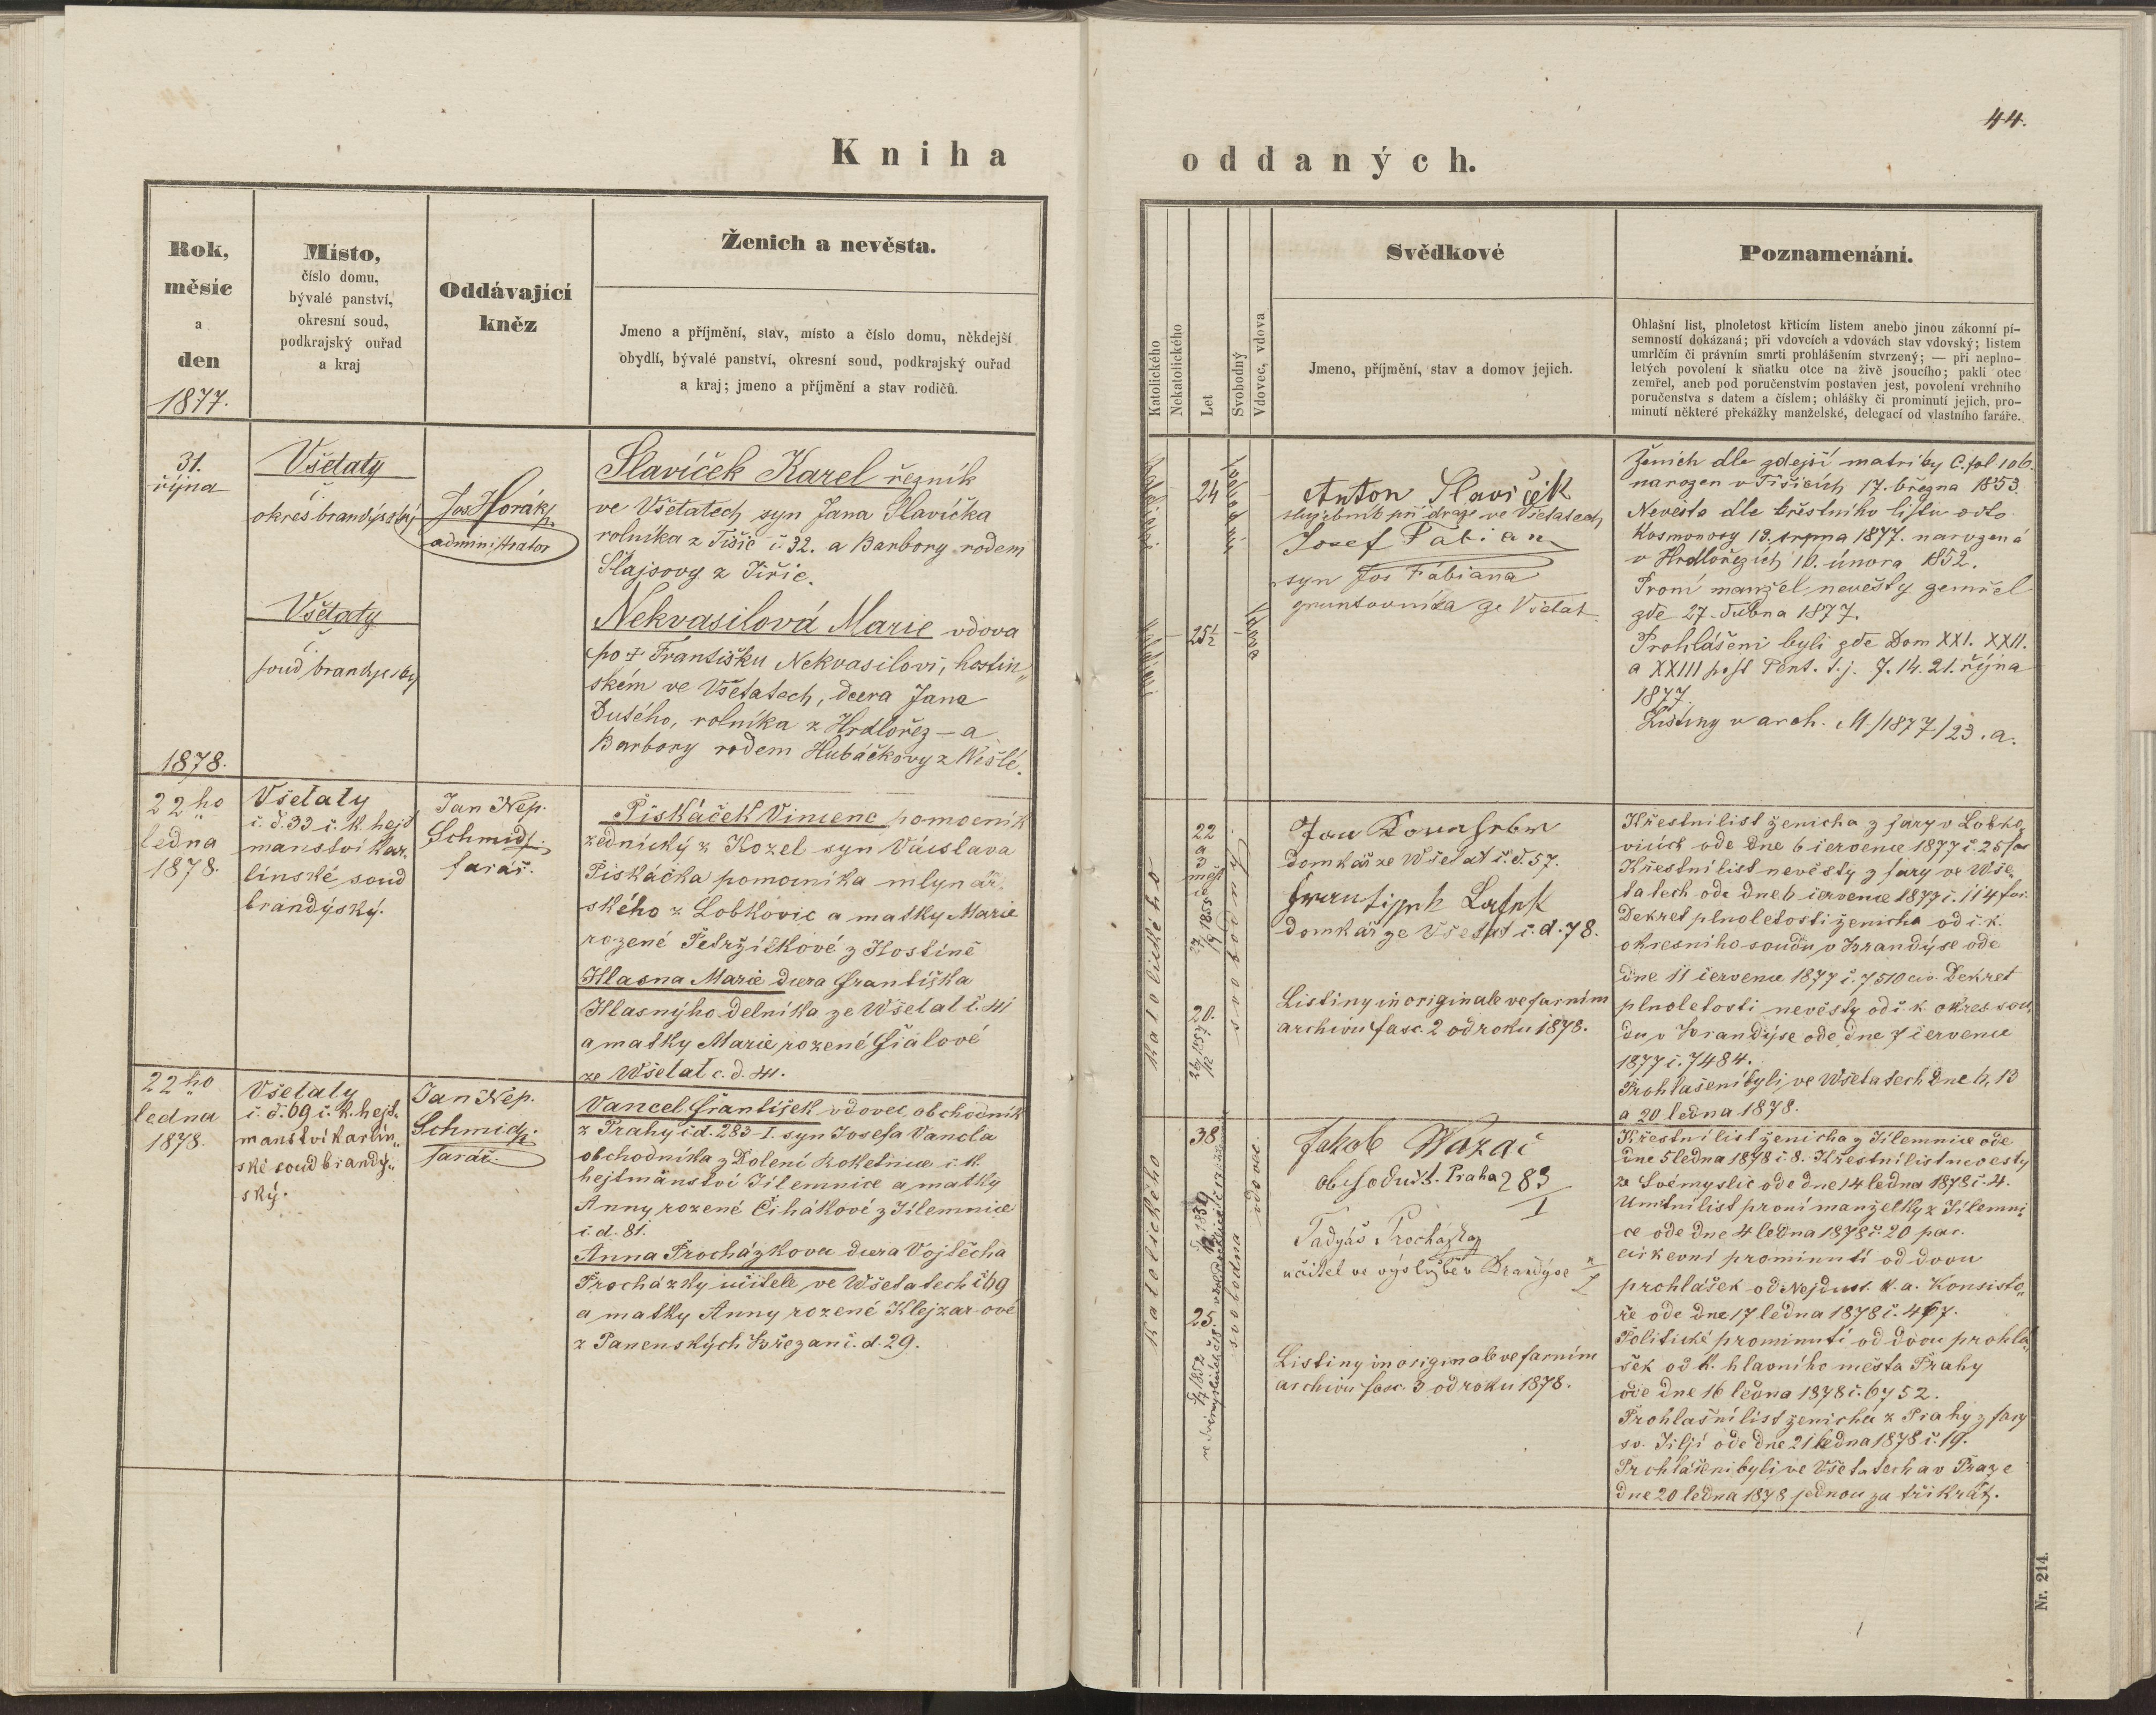 44.
Kniha
oddaných.
Rok,
měsíc
a
den
1877.
Místo,
číslo domu,
bývalé panství,
okresní soud,
podkrajský ouřad
a kraj
Oddávající
kněz
Ženich a nevěsta.
Jmeno a příjmění, stav, místo a číslo domu, někdejší
obydlí, bývalé panství, okresní soud, podkrajský ouřad
a kraj; jmeno a příjmění a stav rodičů.
Katolického
Nekatolického
Let
Svobodný
Vdovec, vdova
Svědkové
Jmeno, příjmění, stav a domov jejich.
Poznamenání.
Ohlašní list, plnoletost křticím listem anebo jinou zákonní pí-
semností dokázaná; při vdovcích a vdovách stav vdovský; listem
umrlčím či právním smrti prohlášením stvrzený; — při neplno-
letých povolení k sňatku otce na živě jsoucího; pakli otec
zemřel, aneb pod poručenstvím postaven jest, povolení vrchního
poručenstva s datem a číslem; ohlášky či prominutí jejich, pro-
minutí některé překážky manželské, delegací od vlastního faráře.
31.
října
Všetaty
okres brandýsský
Všetaty
soud brandýsský
Jos Horák
administrator
Slavíček Karel řezník
ve Všetatech syn Jana Slavíčka
rolníka z Tišic č. 32. a Barbory rodem
Šlajsovy z Jiřic.
Nekvasilová Marie vdova
po + Františku Nekvasilovi, hostin„
ském ve Všetatech, dcera Jana
Dutého, rolníka z Hrdlořez – a
Barbory rodem Hubáčkovy z
24
25½
vdova
Anton Slavíček
služebník při dráze ve Všetatech
Josef Fabian
syn Jos Fábiana
gruntovníka ze Všetat
Ženich dle zdejší matriky C. fol 106.
narozen v Tišicích 17. března 1853.
Nevěsta dle křestního listu odto
Kosmonosy 13. srpna 1877. narozená
v Hrdlořezích 10. února 1852.
První manžel nevěsty zemřel
zde 27. dubna 1877.
Prohlášeni byli zde Dom XXI. XXII.
a XXIII post Pent. t.j. 7. 14. 21. října
1877.
Listiny v arch. M./1877/23. a.
1878.
22ho
ledna
1878.
Všetaty
č. d. 33 c. k. hejt
manství Kar.
línské soud
brandýský.
Jan Nep.
Schmidt
farář.
Piskáček Vincenc pomocník
zednický z Kozel syn Václava
Piskáčka pomocníka mlynář.
ského z Lobkovic a matky Marie
rozené Petržílkové z Kostince
Hlasna Marie dcera Františka
Hlasnýho dělníka ze Wšetat č. 41
a matky Marie rozené Fialové
ze Wšetat č. d. 41.
katolického
22
20.
svobodný
domkář ze Wšetat č. d. 57.
domkář ze Všetat č. d. 78.
Listiny in originale ve farním
archivu fasc. 2 od roku 1878.
Křestní list ženicha z fary v Lobko„
vicích ode dne 6 července 1877 č. 25 far
Křestní list nevěsty z fary ve Wše„
tatech ode dne 6 července 1877 č. 114 far.
Dekret plnoletosti ženicha od c. k.
okresního soudu v Brandýse ode
dne 11 července 1877 č. 7510 civ. Dekret
plnoletosti nevěsty od c. k. okres. sou„
du v Brandýse ode dne 7 července
1877 č. 7484.
Prohlašeni byli ve Wšetatech dne 6, 13
a 20 ledna 1878.
22ho
ledna
1878.
Všetaty
č. d. 69 c. k. hejt„
manství karlín„
ské soud brandý„
ský.
Jan Nep.
Schmidt
farář.
Vancel František vdovec, obchodník
z Prahy č d. 283-I. syn Josefa Vancla
obchodníka z Dolení Rokytnice c. k.
hejtmanství Jilemnice a matky
Anny rozené Čihákové z Jilemnice
č. d. 81.
Anna Procházkova dcera Vojtěcha
Procházky učitele ve Wšetatech č 69
a matky Anny rozené Klejzar-ové
z Panenských Břežan č. d. 29.
katolického
38
25.
vdovec.
svobodna
Jakob
Praha 283
I
Tadyáš Procházka
učitel ve výslužbě v Brandýse
Listiny in originale ve farním
archivu fasc. 3 od roku 1878.
Křestní list ženicha z Jilemnice ode
dne 5 ledna 1878 č. 8. Křestní list nevěsty
ze Svémyslic ode dne 14 ledna 1878 č. 4.
Umrtní list první manželky z Jilemni„
ce ode dne 4 ledna 1878 č. 20 par.
církevní prominutí od dvou
prohlášek od Nejdust. k. a. Konsisto„
ře ode dne 17 ledna 1878 č. 467.
Politické prominutí od dvou prohlá„
šek od k. hlavního města Prahy
ode dne 16 ledna 1878 č. 6752.
Prohlašní list ženicha z Prahy z fary
sv. Jiljí ode dne 21 ledna 1878 č. 19.
Prohlášeni byli ve Všetatech a v Praze
dne 20 ledna 1878 jednou za třikrát.
Nr. 214.